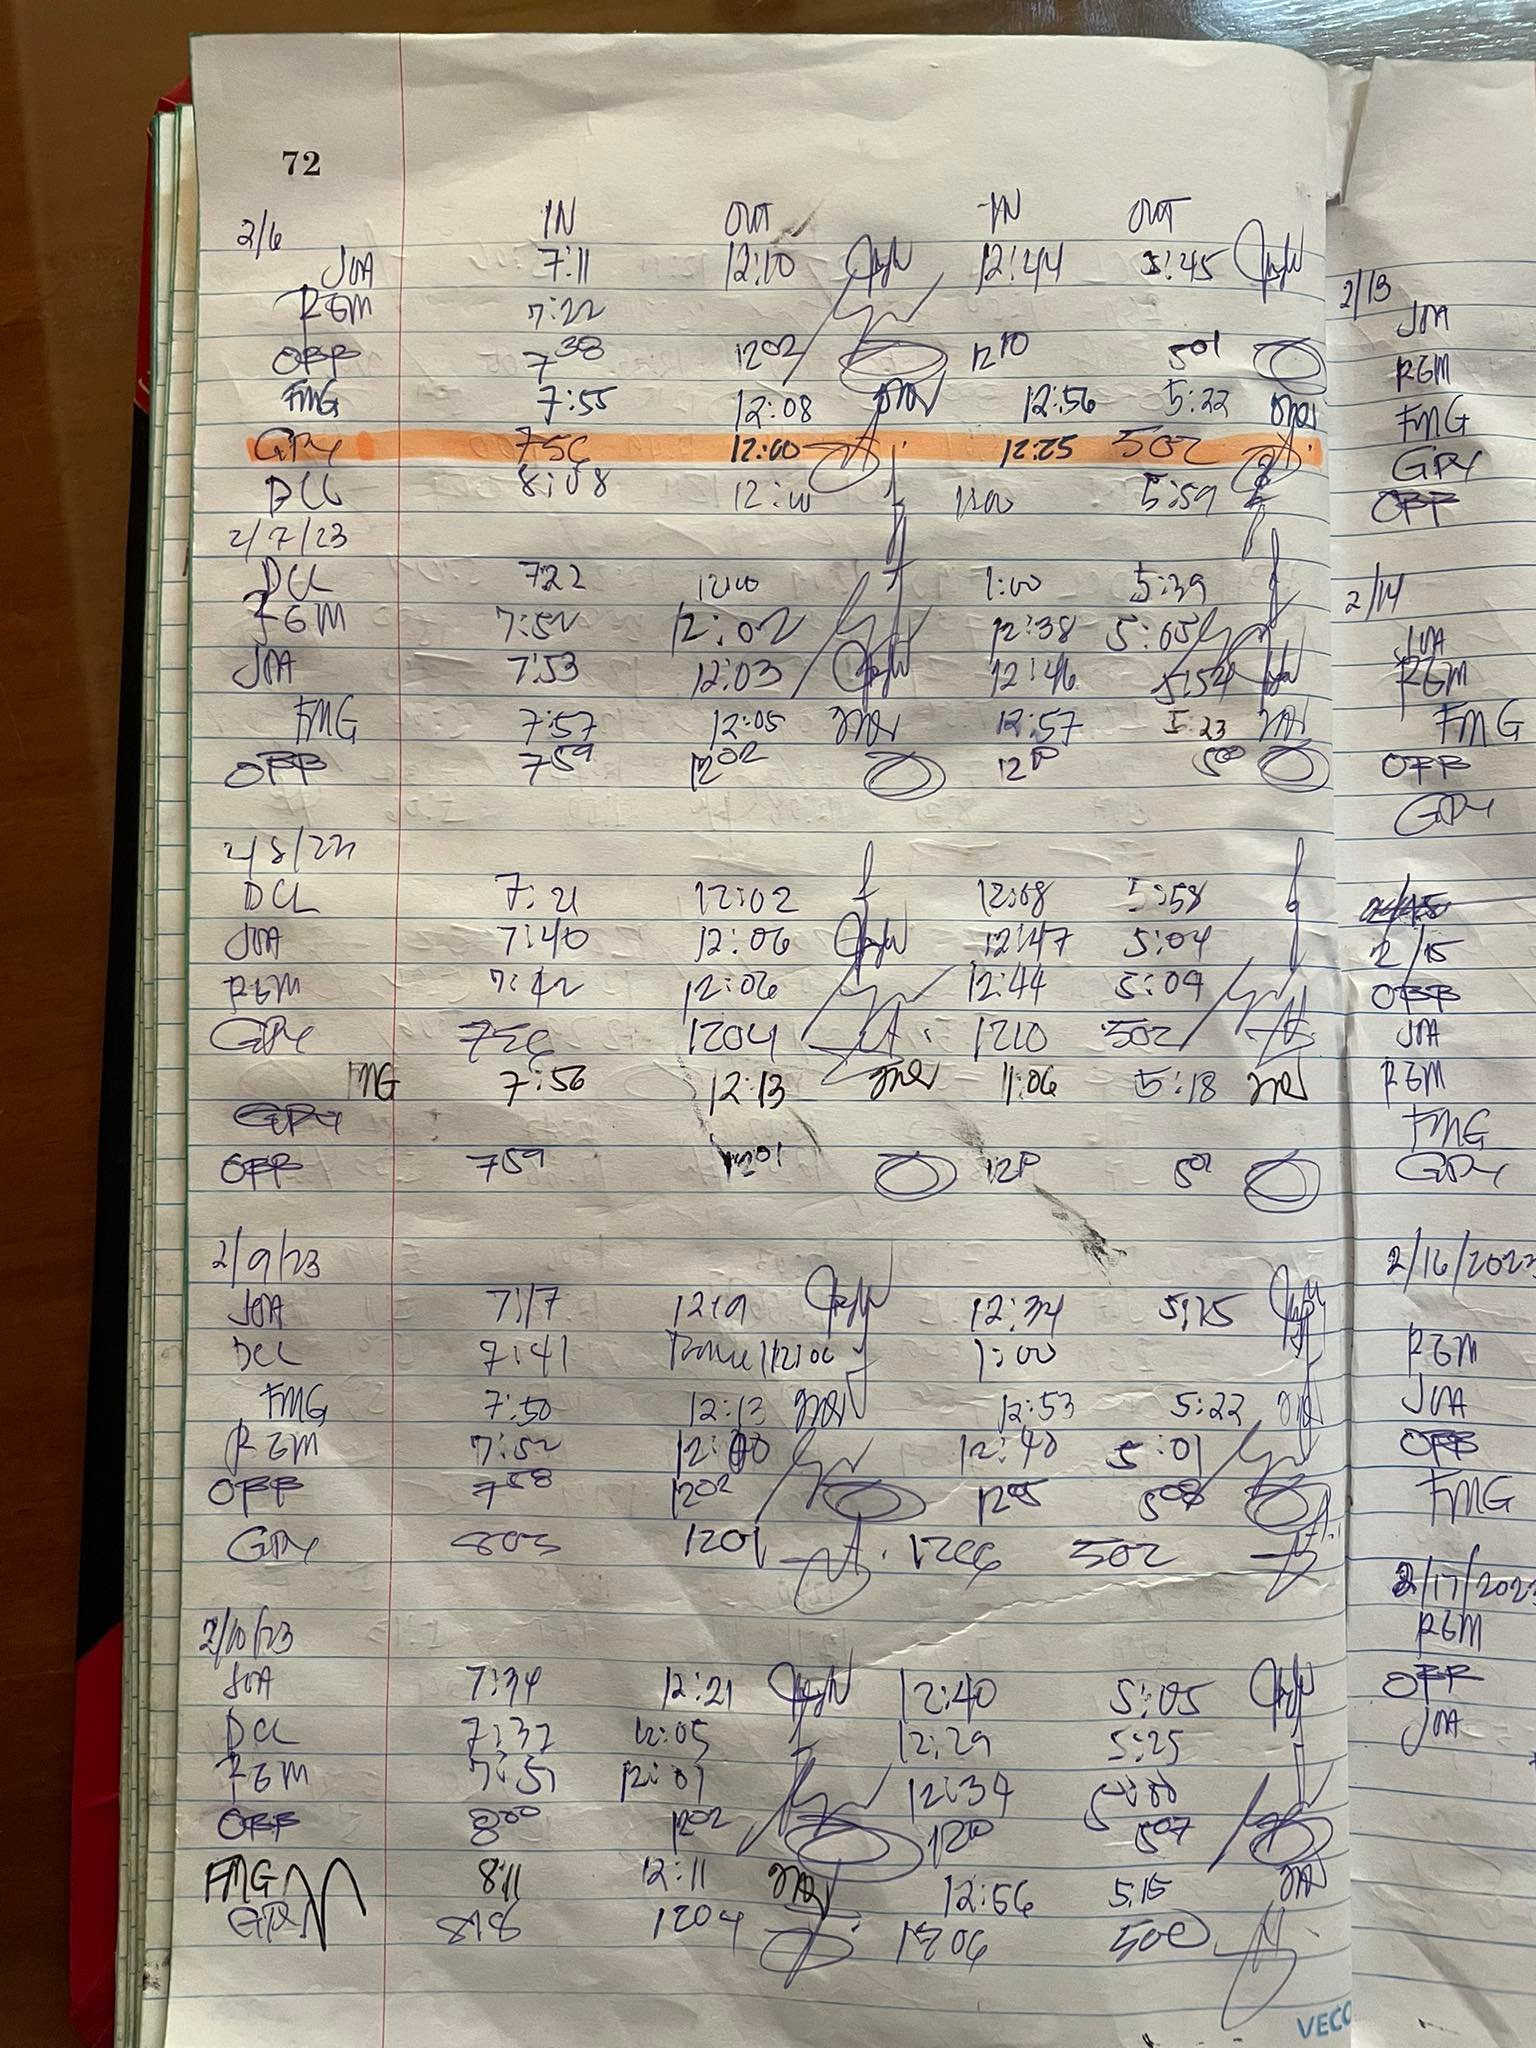 72
IN OUT IN OUT
2/6
JOA 7:11 12:10 12:44 5:45
RGM 7:22
OBB 7 38 12 02 12 10 5 01
FMG 7:55 12:08 12:56 5:22
GPY 756 12:00 12:25 502
DCL 8:08 12:00 1:00 5:59
2/7/23
DCL 722 12:00 1:00 5:39
RGM 7:52 12:02 12:38 5:05
JOA 7:53 12:03 12:46 5:54
FMG 7:57 12:05 12:57 5:23
OBB 7 59 12 02 12 10 5 00
2/8/23
DCL 7:21 12:02 12:08 5:58
JOA 7:40 12:06 12:47 5:04
RGM 7:42 12:06 12:44 5:09
GPY 756 1204 1210 502
FMG 7:56 12:13 1:06 5:18
GPY
OBB 7 59 12 01 12 10 5 01
2/9/23
JOA 7:17 12:19 12:34 5:15
DCL 7:41 12:00 1:00
FMG 7:50 12:13 12:53 5:22
RGM 7:52 12:00 12:40 5:01
OBB 7 58 12 02 12 05 5 08
GPY 803 1201 1206 502
2/10/23
JOA 7:34 12:21 12:40 5:05
DCL 7:37 12:05 12:29 5:25
RGM 7:51 12:01 12:34 5:00
OBB 8 00 12 02 12 10 5 07
FMG 8:11 12:11 12:56 5:15
GPY 818 1204 1206 500
VECO
2/13
JOA
RGM
FMG
GPY
OBB
2/14
JOA
RGM
FMG
OBB
GPY
2/15
OBB
JOA
RGM
FMG
GPY
2/16/2023
RGM
JOA
OBB
FMG
2/17/2023
RGM
OBB
JOA